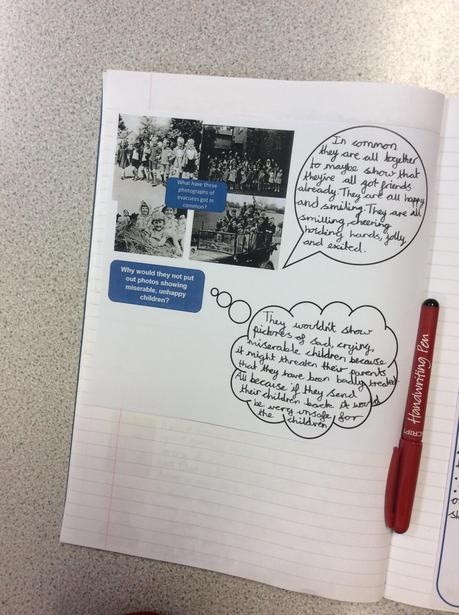 What have these
photographs of
evacuees got in
common?
In common
they are all together
to maybe show that
they're all got friends
already. They are all happy
and smiling. They are all
smilling, cheering
holding hands, jolly
and exited.
Why would they not put
out photos showing
miserable, unhappy
children?
They wouldn't show
pictures of sad, crying,
miserable children because
it might threaten their parents
that they have been badly treated
All because if they send
their children back it would
be very unsafe for
the children
Handwriting Pen